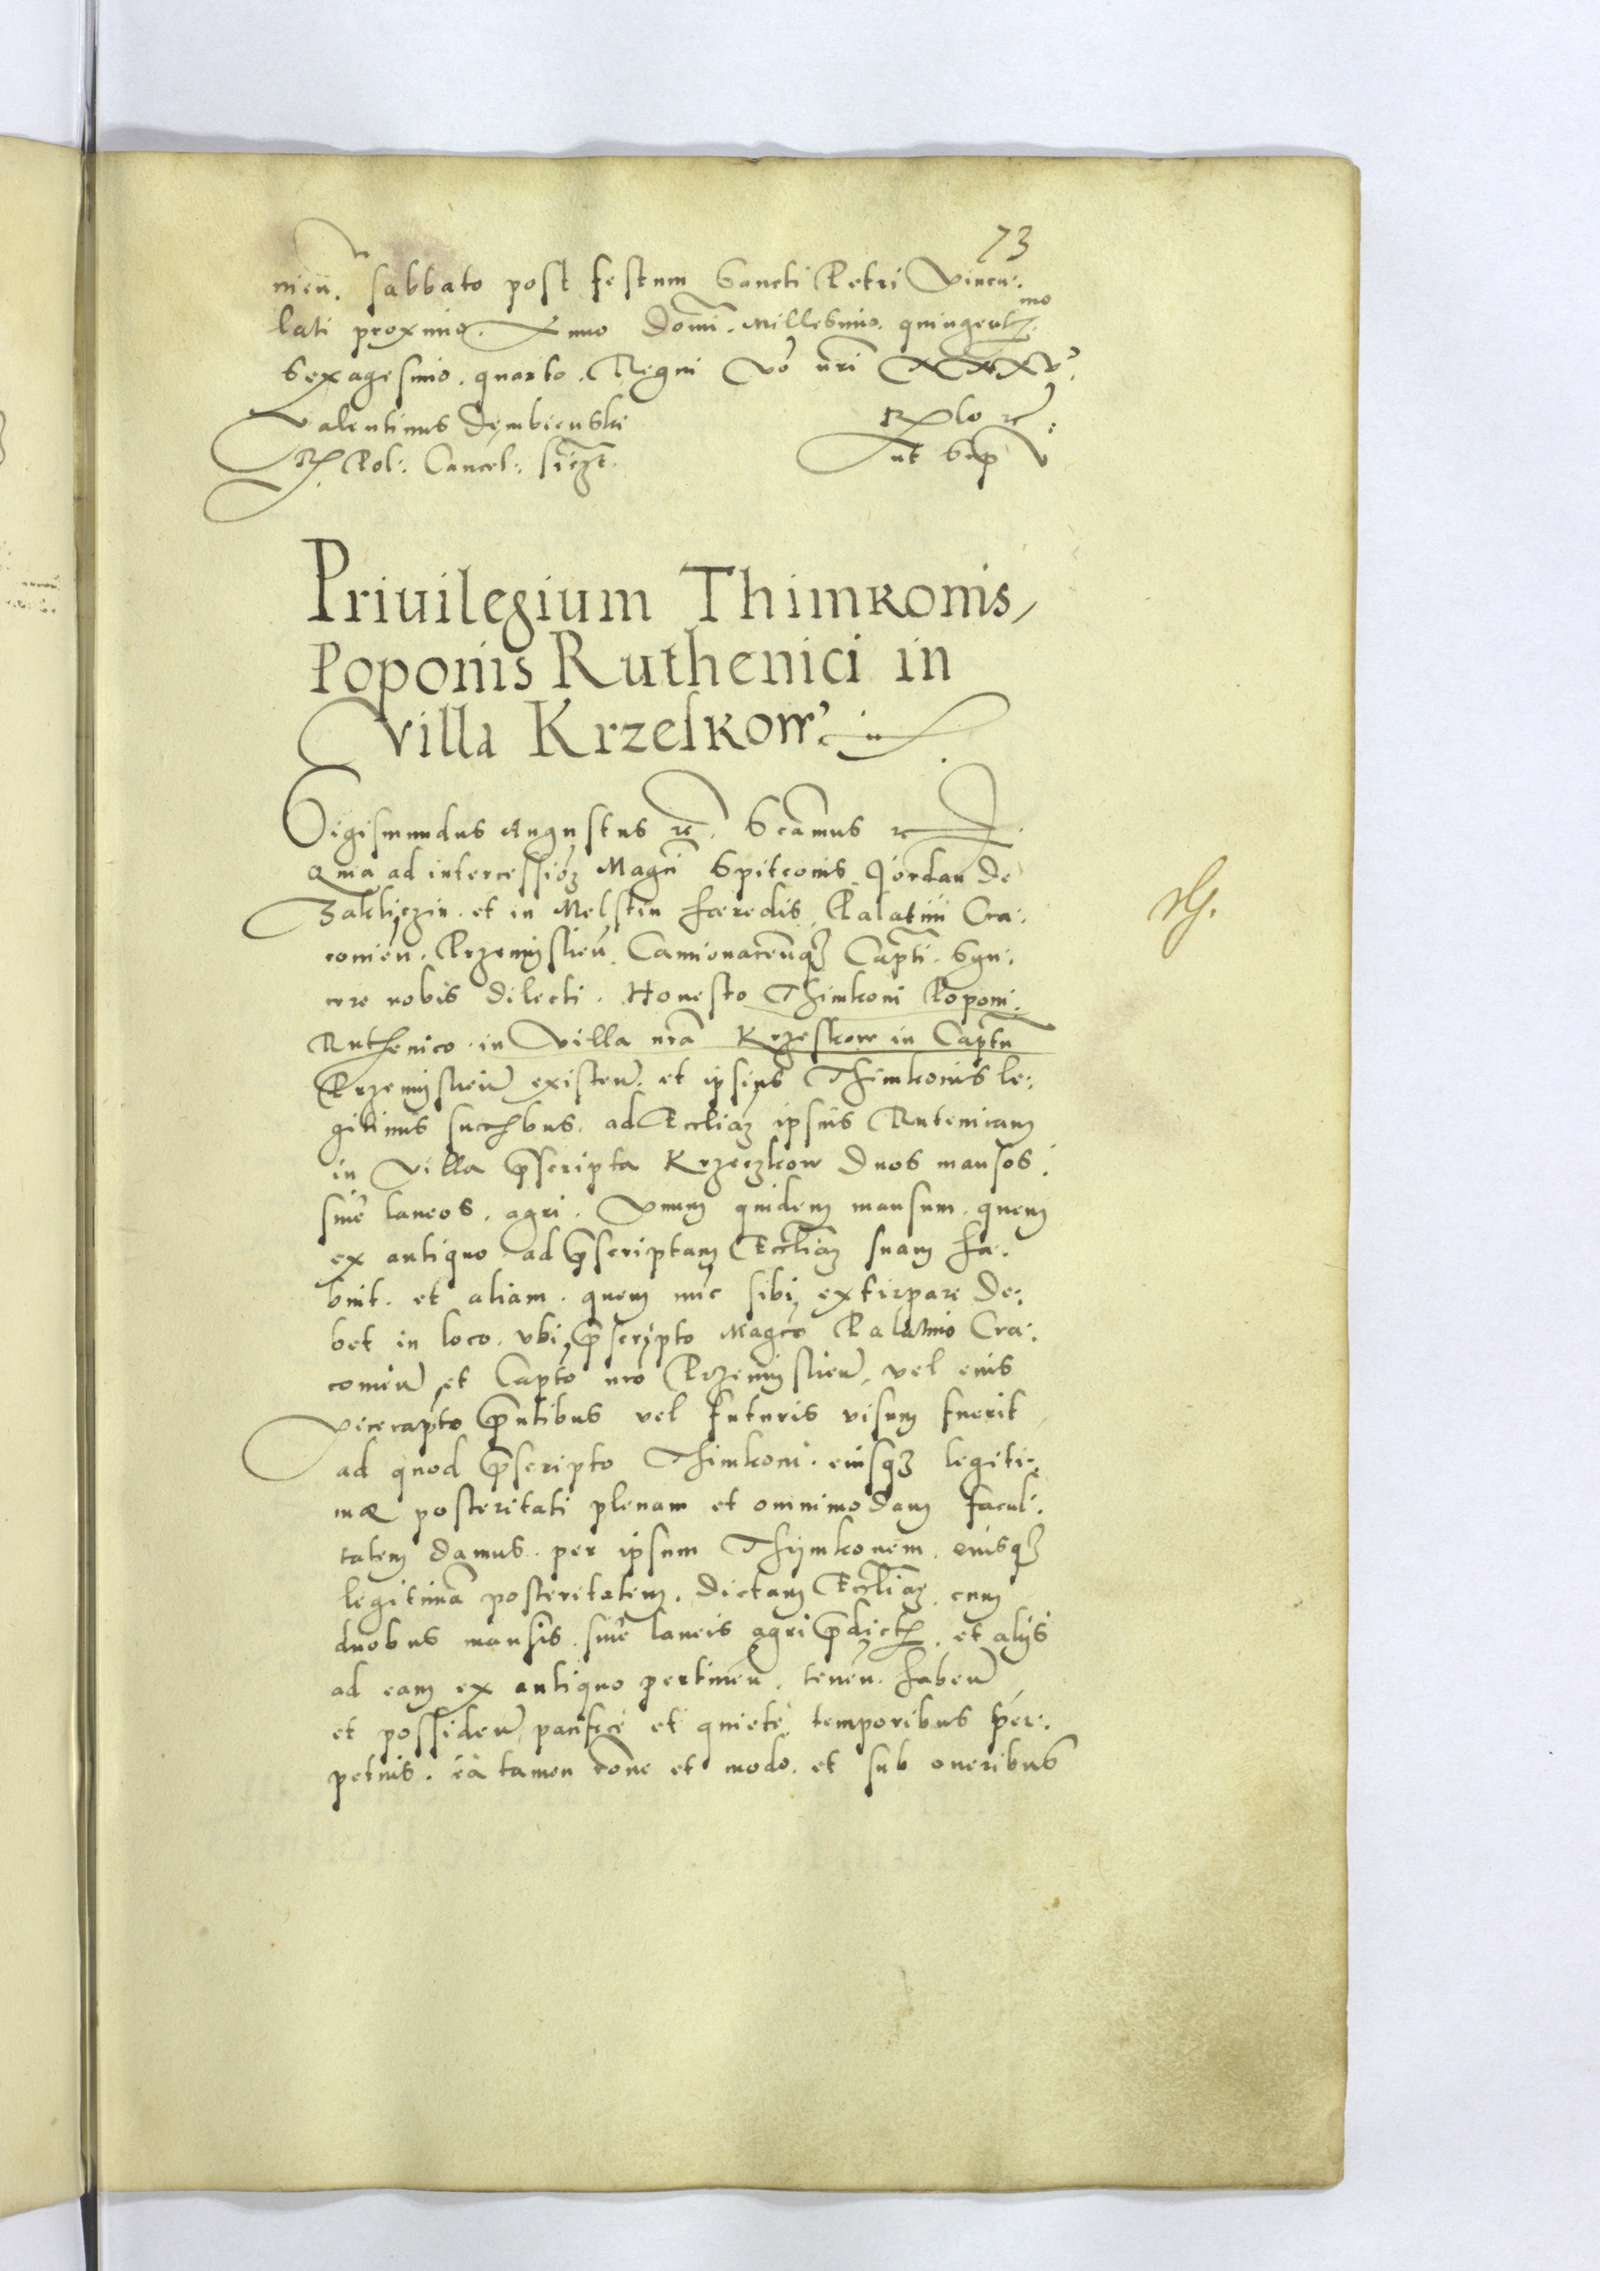 73
nien̄. sabbato post festum Sancti Petri Vincu:
lati proximo. Anno Domī. Millesimo. quingent.mo
Sexagesimo. quarto. Regni vō nr̄i XXXV.
Valentinus Dembienski
R. Pol: Cancel: 
Rlo rc:
ut Sup
Priuilegium Thimkonis,
Poponis Ruthenici in
villa Krzeskow:
Sigismundus Augustus rc̄. Scamus rc
Quia ad intercessioz Magci Spitconis Jordan de
Zakliczin. et in Melstin hæredis Palatini Cra:
conień. Przemyslień. Camionaceńqz Capt̄i. Syn:
cere nobis dilecti. Honesto Thimkoni Poponi
Ruthenico in Villa nrā Krzeskow in Captū
Przemyslień existeń. et ipsius Thimkonis le:
gitimis succhbus. ad Eccliaz ipsius Rutenicam
in Villa p̄scripta Krzeczkow duos mansos.
siue laneos. agri. Vnum quidem mansum. quem
ex antiquo ad p̄scriptam Eccliaz suam ha:
buit. et aliam. quem nūc sibi extirpare de:
bet in loco. vbi p̄scripto Magco Palatino Cra:
conień et Capto nrō Przemyslień, vel eius
Vicecapto p̄ntibus vel futuris visum fuerit
ad quod p̄scripto Thimkoni. eiusqz legiti:
mæ posteritati plenam et omnimodam facul:
tatem damus. per ipsum Thijmkonem. eiusqz
legitimā posteritatem. dictam Eccliaz cum
duobus mansis. siue laneis agri p̄dict. et alijs
ad eam ex antiquo pertineń. teneń. habeń
et possideń pacificè et quietè temporibus per:
petuis. eà tamen rōne et modo. et sub oneribus